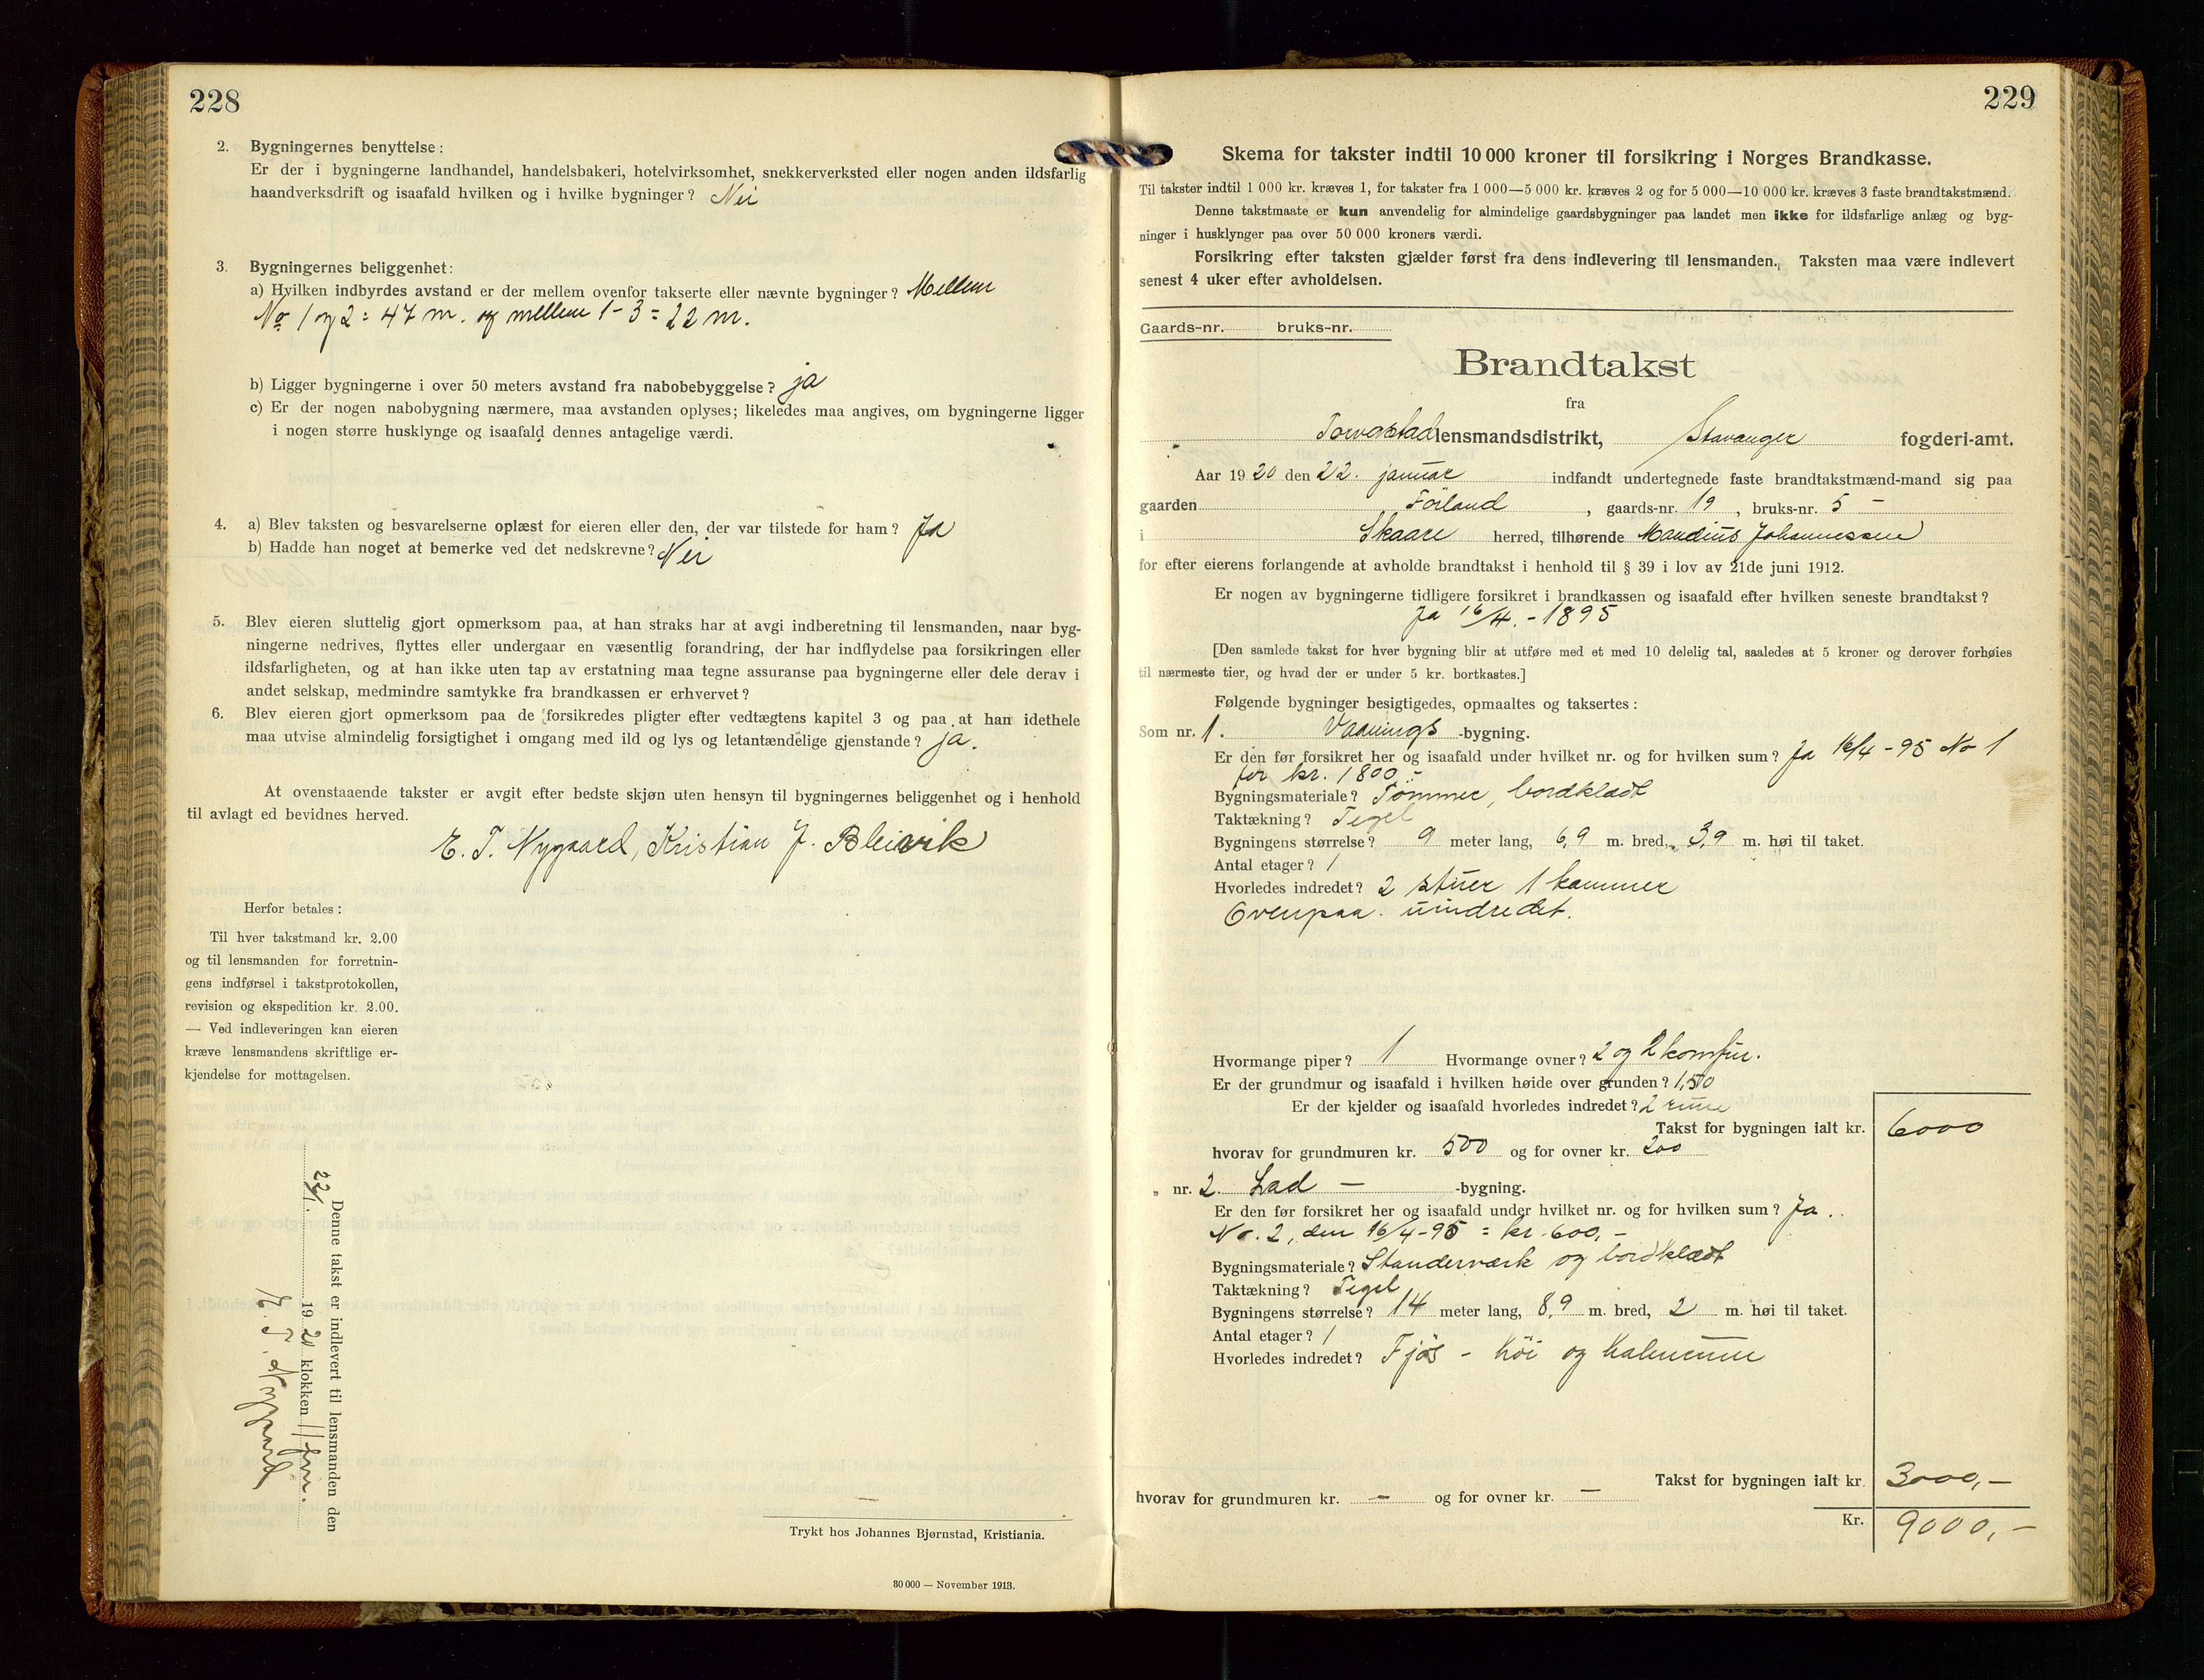 228
2. Bygningernes benyttelse:
Er der i bygningerne landhandel, handelsbakeri, hotelvirksomhet, snekkerverksted eller nogen anden ildsfarlig
haandverksdrift og isaafald hvilken og i hvilke bygninger? Nei
3. Bygningernes beliggenhet:
a) Hvilken indbyrdes avstand er der mellem ovenfor takserte eller nævnte bygninger? Mellem
No 1 og 2 = 47 m. og mellem 1-3 = 22 m.
b) Ligger bygningerne i over 50 meters avstand fra nabobebyggelse? ja
c) Er der nogen nabobygning nærmere, maa avstanden oplyses; likeledes maa angives, om bygningerne ligger
i nogen større husklynge og isaafald dennes antagelige værdi.
4. a) Blev taksten og besvarelserne oplæst for eieren eller den, der var tilstede for ham? Ja
b) Hadde han noget at bemerke ved det nedskrevne? Nei
5. Blev eieren sluttelig gjort opmerksom paa, at han straks har at avgi indberetning til lensmanden, naar byg-
ningerne nedrives, flyttes eller undergaar en væsentlig forandring, der har indflydelse paa forsikringen eller
ildsfarligheten, og at han ikke uten tap av erstatning maa tegne assuranse paa bygningerne eller dele derav i
andet selskap, medmindre samtykke fra brandkassen er erhvervet?
6. Blev eieren gjort opmerksom paa de forsikredes pligter efter vedtægtens kapitel 3 og paa at han idethele
maa utvise almindelig forsigtighet i omgang med ild og lys og letantændelige gjenstande? ja.
At ovenstaaende takster er avgit efter bedste skjøn uten hensyn til bygningernes beliggenhet og i henhold
til avlagt ed bevidnes herved.
E. T. Nygaard, Kristian J. Bleivik
Herfor betales:
Til hver takstmand kr. 2.00
og til lensmanden for forretnin-
gens indførsel i takstprotokollen,
revision og ekspedition kr. 2.00.
— Ved indleveringen kan eieren
kræve lensmandens skriftlige er-
kjendelse for mottagelsen.
Denne takst er indlevert til lensmanden den
22/1. 1920 klokken 11 fm.
E. T. Nygaard
Trykt hos Johannes Bjørnstad, Kristiania.
30 000 — November 1913.
229
Skema for takster indtil 10 000 kroner til forsikring i Norges Brandkasse.
Til takster indtil 1 000 kr. kræves 1, for takster fra 1 000—5 000 kr. kræves 2 og for 5 000—10 000 kr. kræves 3 faste brandtakstmænd.
Denne takstmaate er kun anvendelig for almindelige gaardsbygninger paa landet men ikke for ildsfarlige anlæg og byg-
ninger i husklynger paa over 50 000 kroners værdi.
Forsikring efter taksten gjælder først fra dens indlevering til lensmanden. Taksten maa være indlevert
senest 4 uker efter avholdelsen.
Gaards-nr. bruks-nr.
Brandtakst
fra
Torvastad lensmandsdistrikt, Stavanger fogderi-amt.
Aar 1920 den 22. januar indfandt undertegnede faste brandtakstmænd-mand sig paa
gaarden Förland, gaards-nr. 19, bruks-nr. 5 –
i Skaare herred, tilhørende Mandius Johannessen
for efter eierens forlangende at avholde brandtakst i henhold til § 39 i lov av 21de juni 1912.
Er nogen av bygningerne tidligere forsikret i brandkassen og isaafald efter hvilken seneste brandtakst?
Ja 16/4. - 1895
[Den samlede takst for hver bygning blir at utføre med et med 10 delelig tal, saaledes at 5 kroner og derover forhøies
til nærmeste tier, og hvad der er under 5 kr. bortkastes.]
Følgende bygninger besigtigedes, opmaaltes og taksertes:
Som nr. 1. Vaanings -bygning.
Er den før forsikret her og isaafald under hvilket nr. og for hvilken sum? Ja 16/4 - 95 No 1
for kr. 1800.-
Bygningsmateriale? Tömmer, bordklædt
Taktækning? Tegel
Bygningens størrelse? 9 meter lang, 6,9 m. bred, 3,9 m. høi til taket.
Antal etager? 1
Hvorledes indredet? 2 stuer 1 kammer
Ovenpaa uindredet.
Hvormange piper? 1 Hvormange ovner? 2 og 2 komfur.
Er der grundmur og isaafald i hvilken høide over grunden? 1,50
Er der kjelder og isaafald hvorledes indredet? 2 rum
Takst for bygningen ialt kr. 6000
hvorav for grundmuren kr. 500 og for ovner kr. 200
„ nr. 2. Lad – -bygning.
Er den før forsikret her og isaafald under hvilket nr. og for hvilken sum? Ja.
No. 2, den 16/4-95 = kr. 600,-
Bygningsmateriale? Standerværk og bordklædt
Taktækning? Tegel
Bygningens størrelse? 14 meter lang, 8,9 m. bred, 2 m. høi til taket.
Antal etager? 1
Hvorledes indredet? Fjös - höi og halmrum
Takst for bygningen ialt kr. 3000,-
hvorav for grundmuren kr. – og for ovner kr. –
Kr. 9000,-